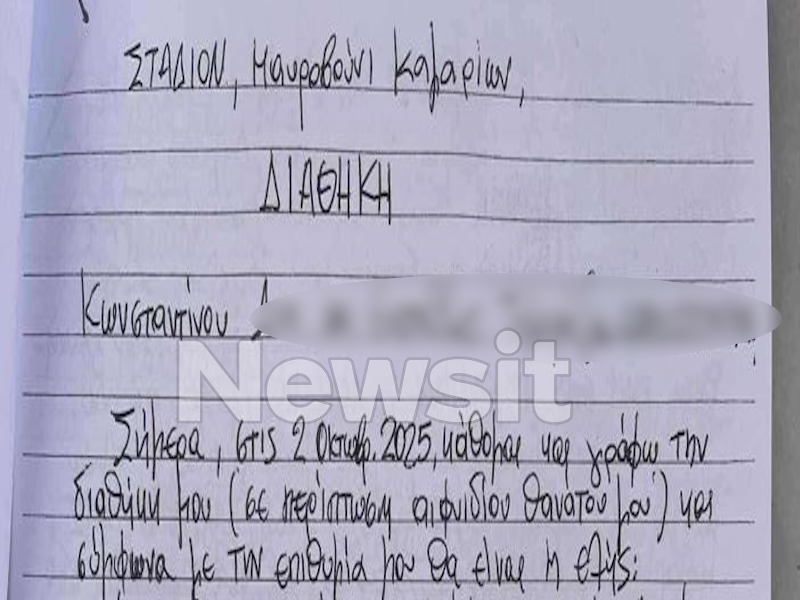 ΣΤΑΔΙΟΝ, Μαυροβούνι Καμαρίων,
ΔΙΑΘΗΚΗ
Κωνσταντίνου
Newsit
Σήμερα, στις 2 Οκτωβρ. 2025, κάθομαι και γράφω την
διαθήκη μου (σε περίπτωση αιφνιδίου θανάτου μου) και
σύμφωνα με την επιθυμία μου θα είναι η εξής: